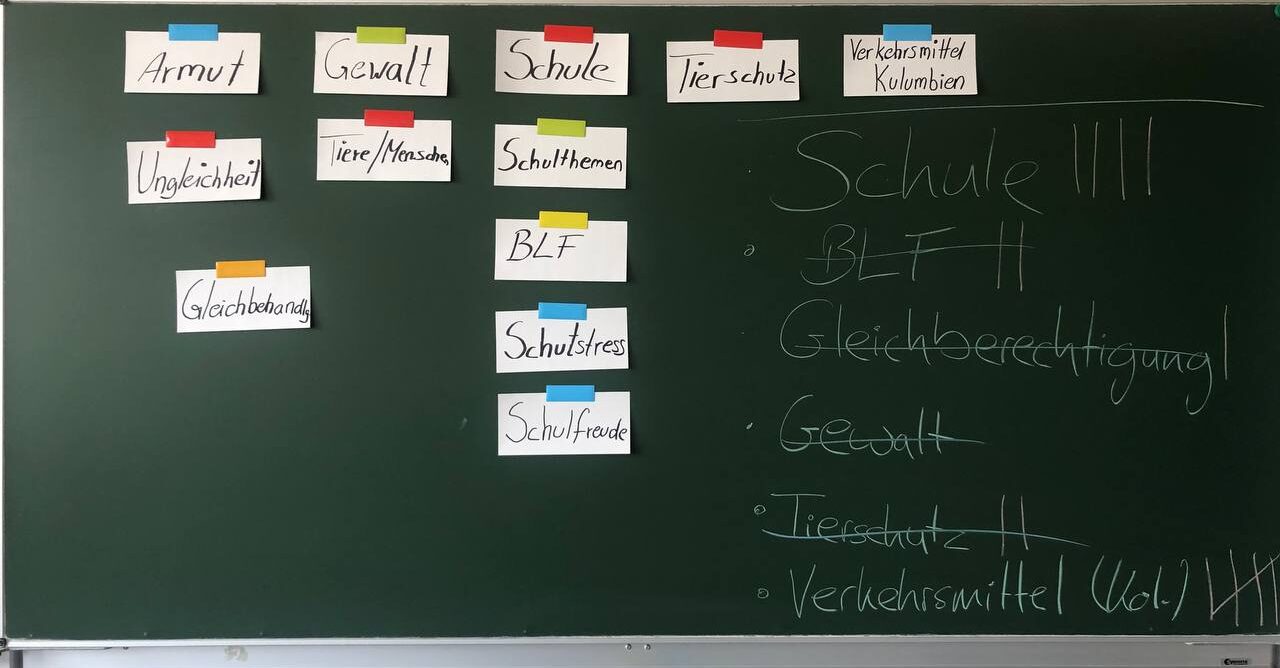 Armut
Gewalt
Schule
Tierschutz
Verkehrsmittel
Kulumbien
Ungleichheit
Tiere/Menschen
Schulthemen
BLF
Gleichbehandlg
Schulstress
Schulfreude
Schule ||||
BLF ||
Gleichberechtigung |
Gewalt
Tierschutz ||
Verkehrsmittel (Kol.) ||||